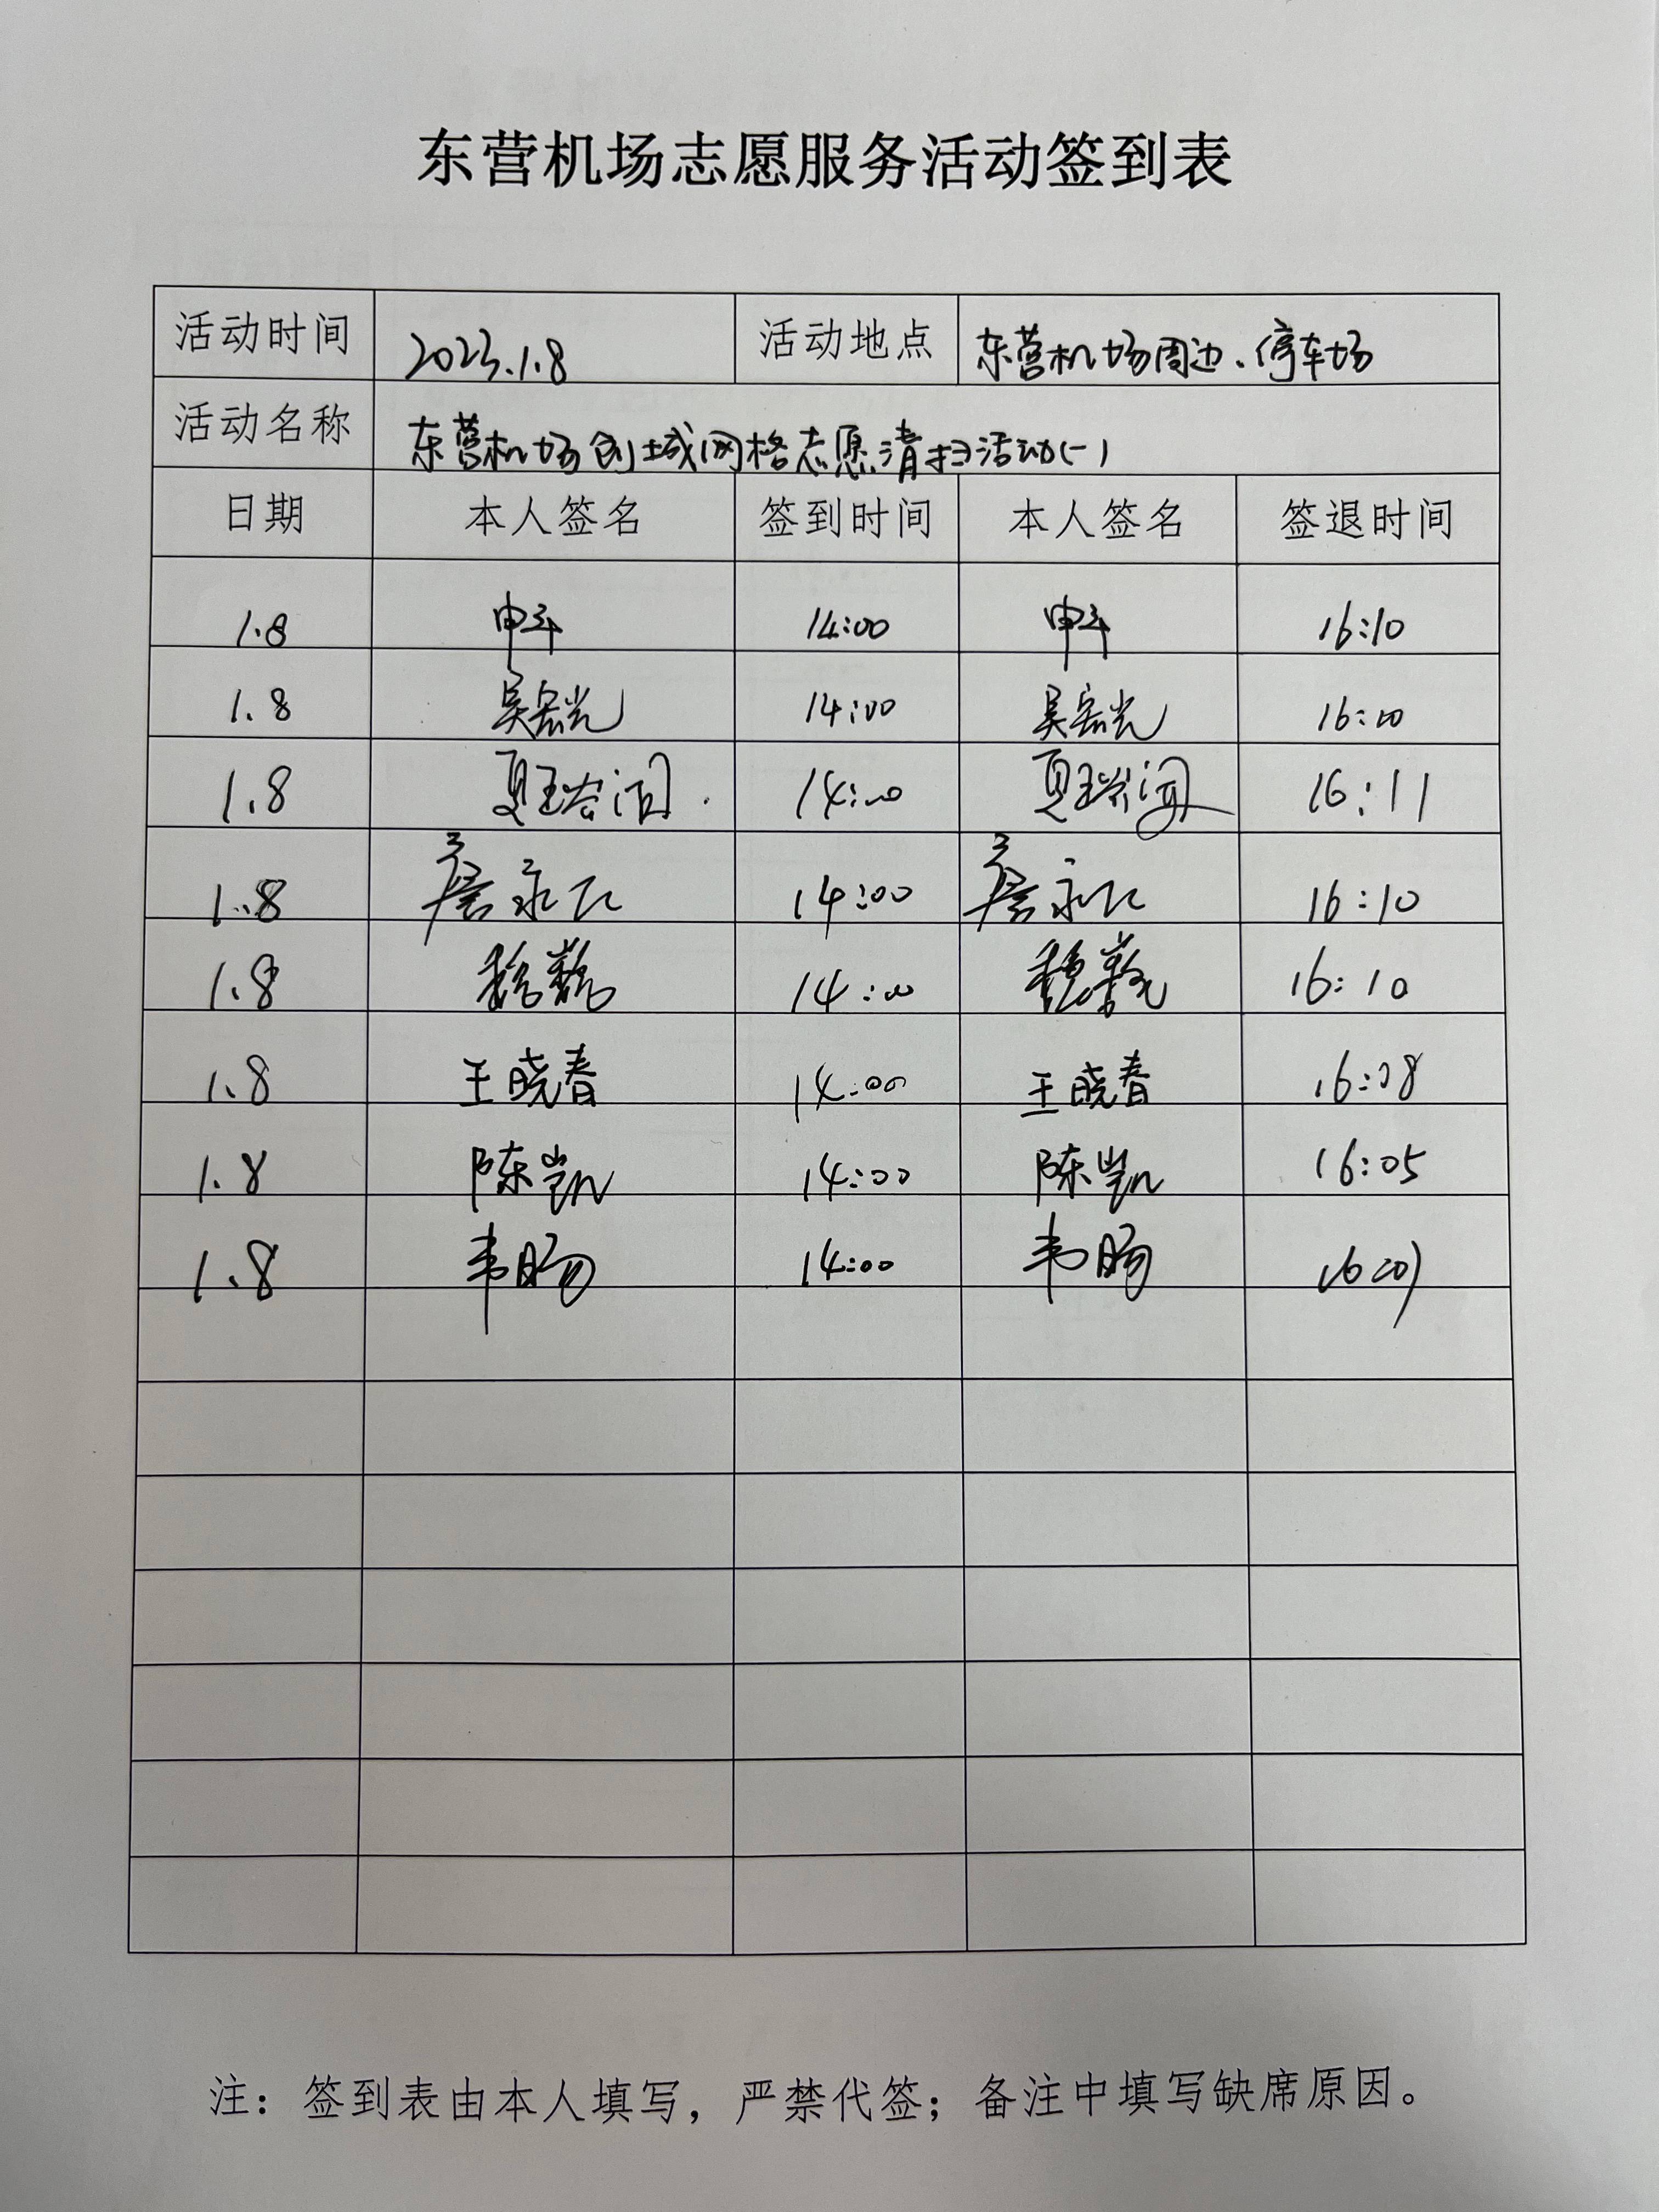 东营机场志愿服务活动签到表
活动时间 2023.1.8 活动地点 东营机场周边、停车场
活动名称 东营机场创城网格志愿清扫活动(一)
日期 本人签名 签到时间 本人签名 签退时间
1.8 14:00 16:10
1.8 14:00 16:10
1.8 14:00 16:11
1.8 14:00 16:10
1.8 14:00 16:10
1.8 王晓春 14:00 王晓春 16:08
1.8 陈凯 14:00 陈凯 16:05
1.8 14:00
注：签到表由本人填写，严禁代签；备注中填写缺席原因。